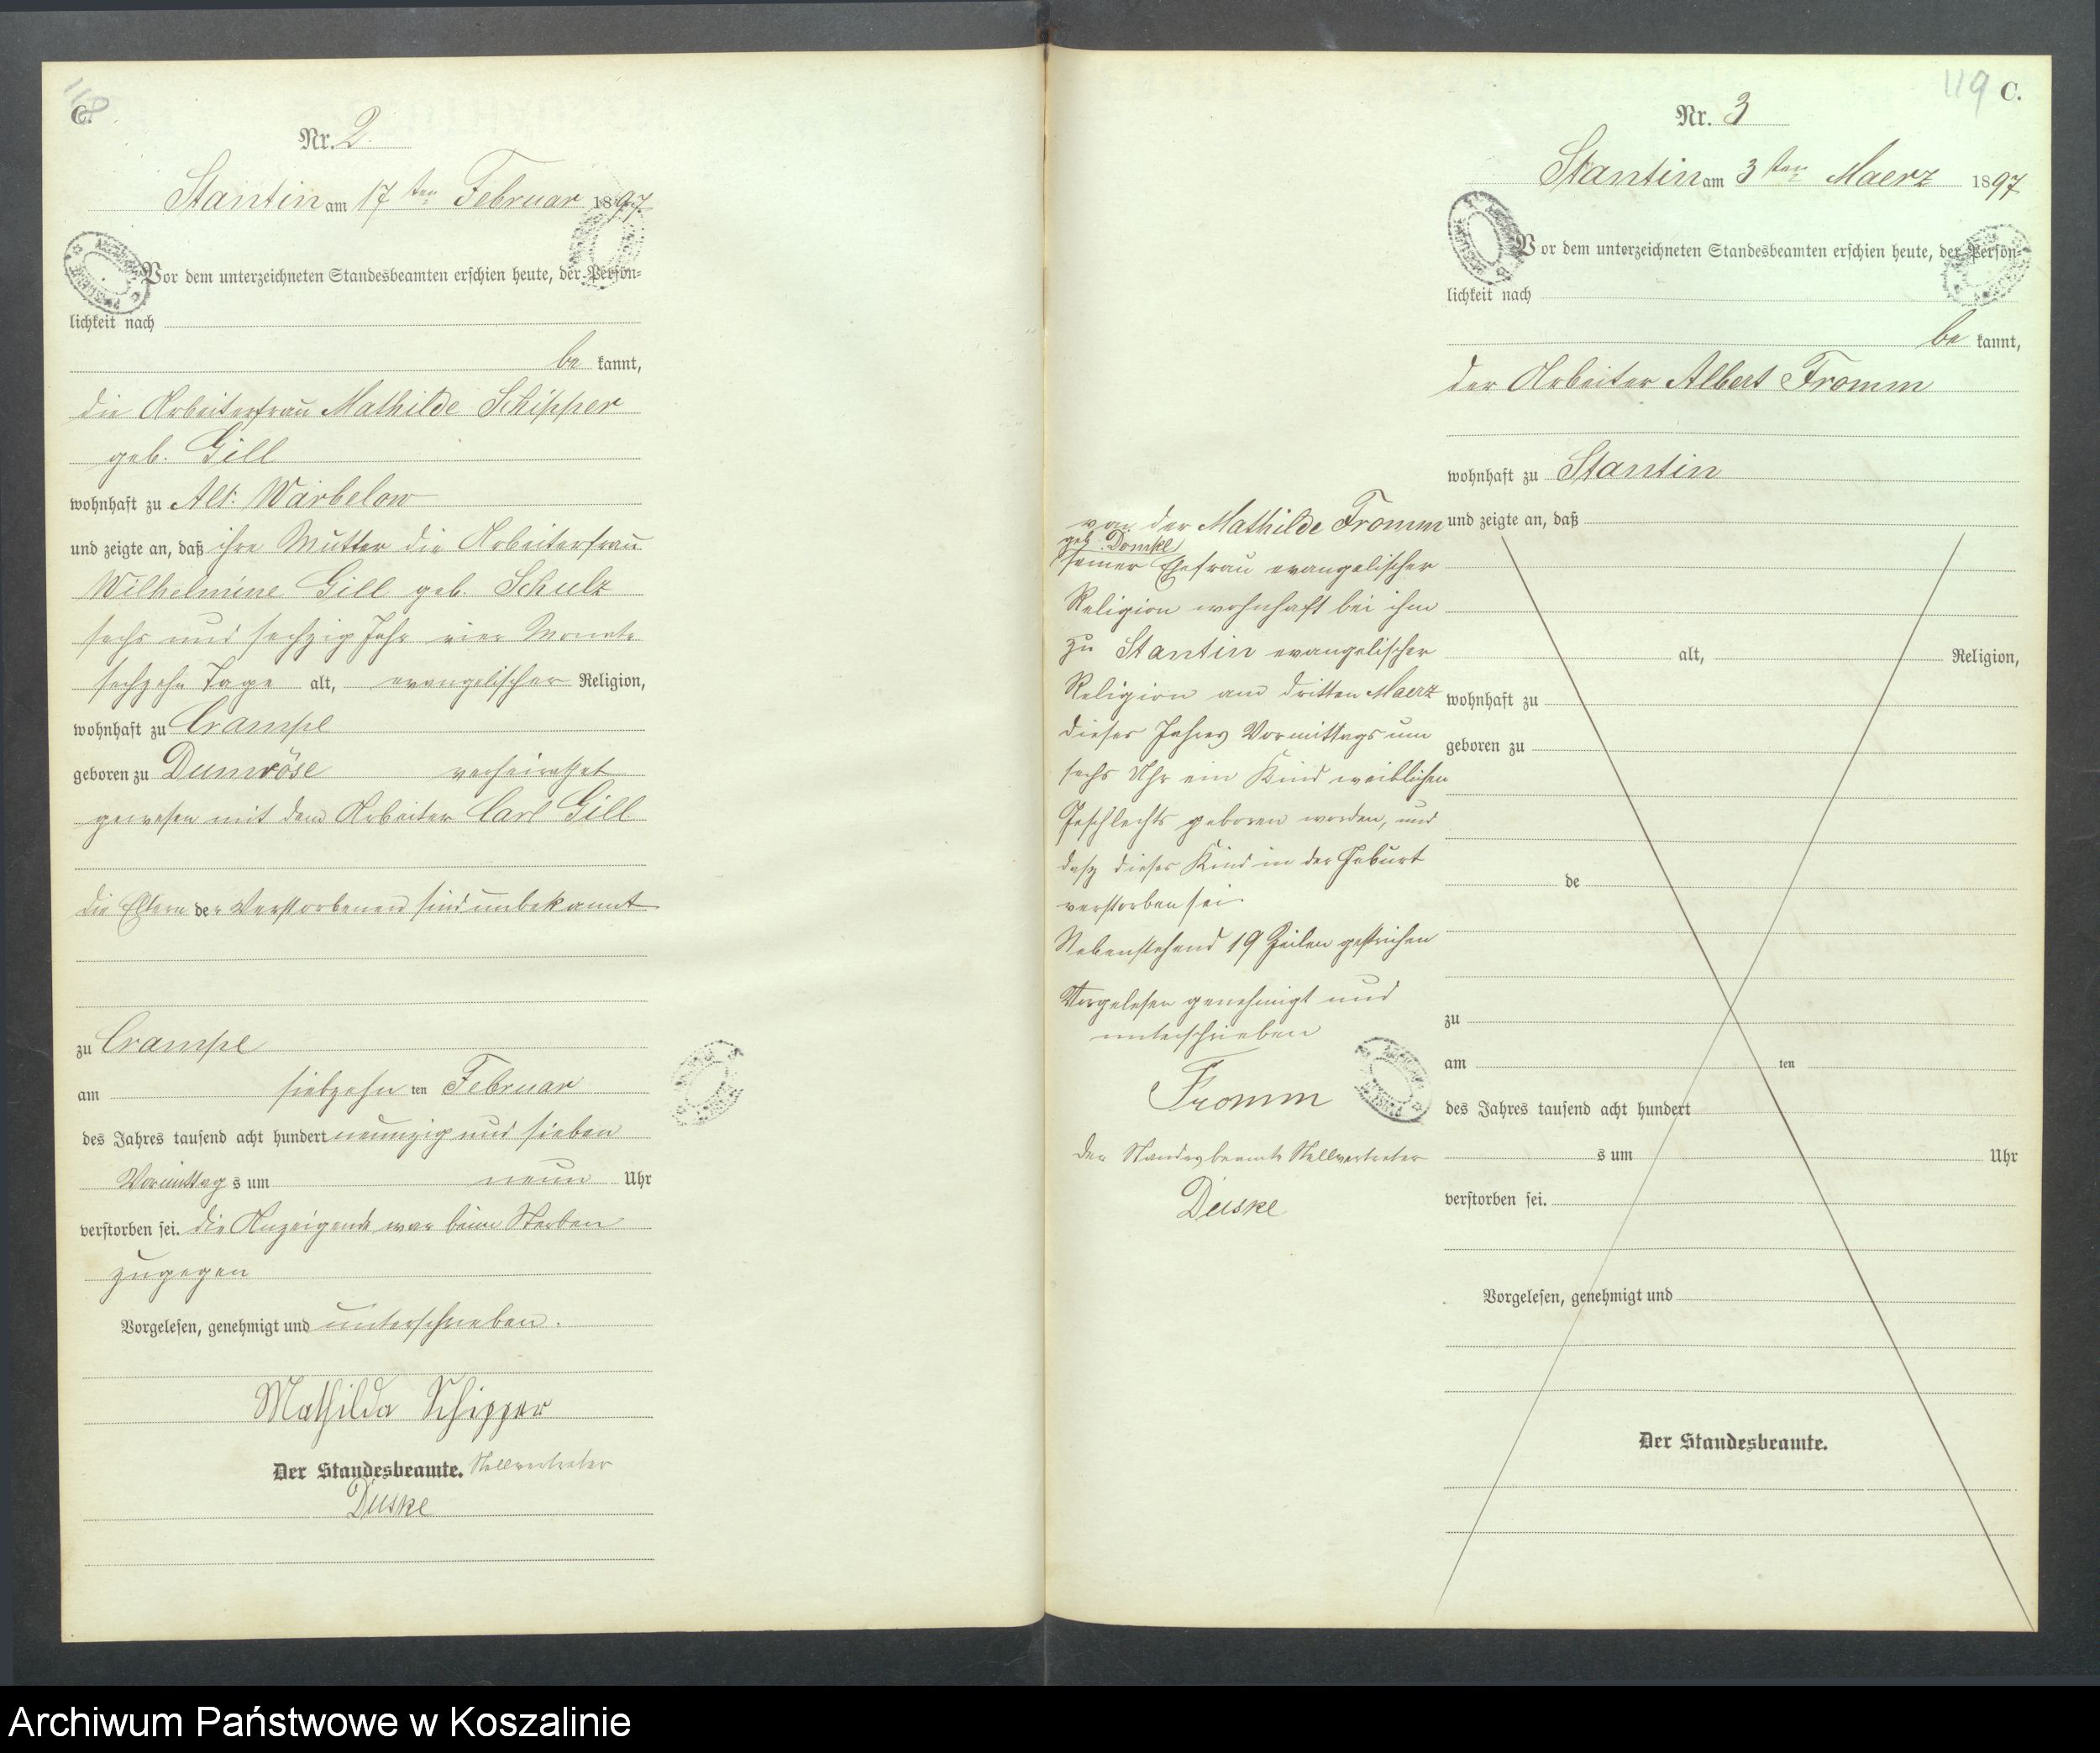 118
C.
Nr. 2.
Stantin am 17ten Februar 1897.
Vor dem unterzeichneten Standesbeamten erschien heute, der Persön-
lichkeit nach
be kannt,
die Arbeiterfrau Mathilde Schipper
geb. Gill
wohnhaft zu Alt: Warbelow
und zeigte an, daß ihre Mutter die Arbeiterfrau
Wilhelmine Gill geb. Schulz
sechs und sechzig Jahr vier Monate
sechzehn Tage alt, evangelischer Religion,
wohnhaft zu Crampe
geboren zu Dumröse verheirathet
gewesen mit dem Arbeiter Carl Gill
die Eltern der Verstorbenen sind unbekannt
zu Crampe
am siebzehn ten Februar
des Jahres tausend acht hundert neunzig und sieben
Vormittag s um neun Uhr
verstorben sei. die Anzeigende war beim Sterben
zugegen
Vorgelesen, genehmigt und unterschrieben.
Mathilda Schipper
Der Standesbeamte. Stellvertreter
Duske
119 C.
Nr. 3
Stantin am 3ten Maerz 1897
Vor dem unterzeichneten Standesbeamten erschien heute, der Persön-
lichkeit nach
be kannt,
der Arbeiter Albert Fromm
wohnhaft zu Stantin
und zeigte an, daß
alt, Religion,
wohnhaft zu
geboren zu
de
zu
am ten
des Jahres tausend acht hundert
s um Uhr
verstorben sei.
Vorgelesen, genehmigt und
Der Standesbeamte.
von der Mathilde Fromm
geb. Domke
seiner Ehefrau evangelischer
Religion wohnhaft bei ihm
zu Stantin evangelischer
Religion am dritten Maerz
dieses Jahres Vormittags um
sechs Uhr ein Kind weiblichen
Geschlechts geboren worden, und
dasz dieses Kind in der Geburt
verstorben sei.
Nebenstehend 19 Zeilen gestrichen
Vorgelesen genehmigt und
unterschrieben
Fromm
der Standesbeamte Stellvertreter
Duske
Archiwum Państwowe w Koszalinie